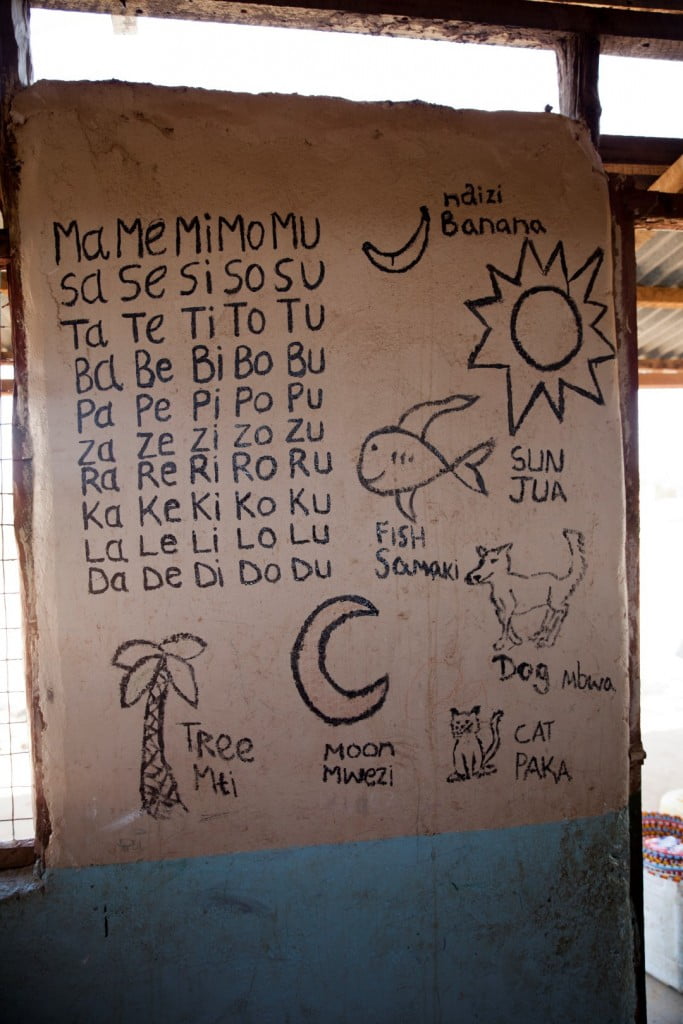 Ma Me Mi Mo Mu
Sa Se Si So Su
Ta Te Ti To Tu
Ba Be Bi Bo Bu
Pa Pe Pi Po Pu
Za Ze Zi Zo Zu
Ra Re Ri Ro Ru
Ka Ke Ki Ko Ku
La Le Li Lo Lu
Da De Di Do Du
ndizi
Banana
SUN
JUA
FISH
Samaki
Dog Mbwa
TRee
Mti
MOON
Mwezi
CAT
PAKA